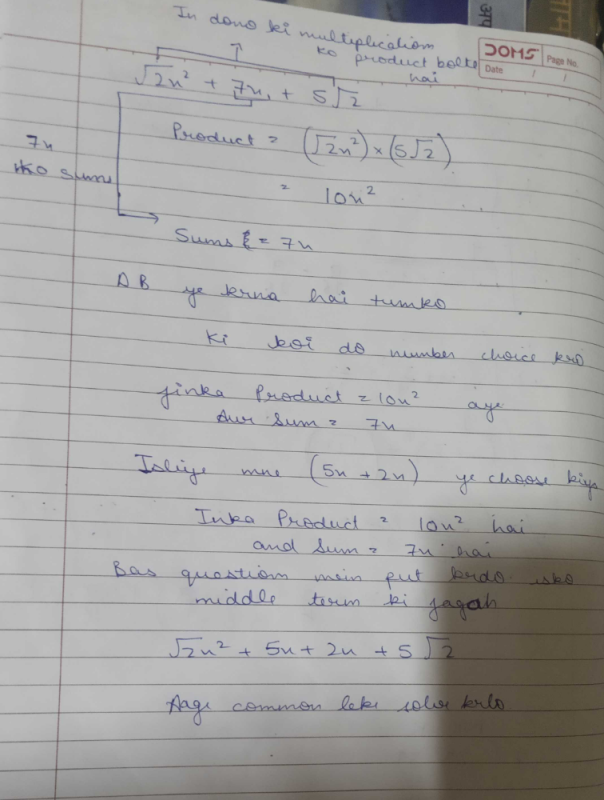 In dono ki multiplication
ko product bolte
hai
DOMS
Page No.
Date / /
√2x² + 7x + 5√2
7x
ko sum
Product = (√2x²) × (5√2)
= 10x²
Sums = 7x
AB ye krna hai tumko
Ki koi do number choice kro
jinka Product = 10x² aye
Aur Sum = 7x
Isliye mne (5x + 2x) ye choose kiya
Inka Product = 10x² hai
and Sum = 7x hai
Bas question mein put krdo isko
middle term ki jagah
√2x² + 5x + 2x + 5√2
Aage common leke solve krlo